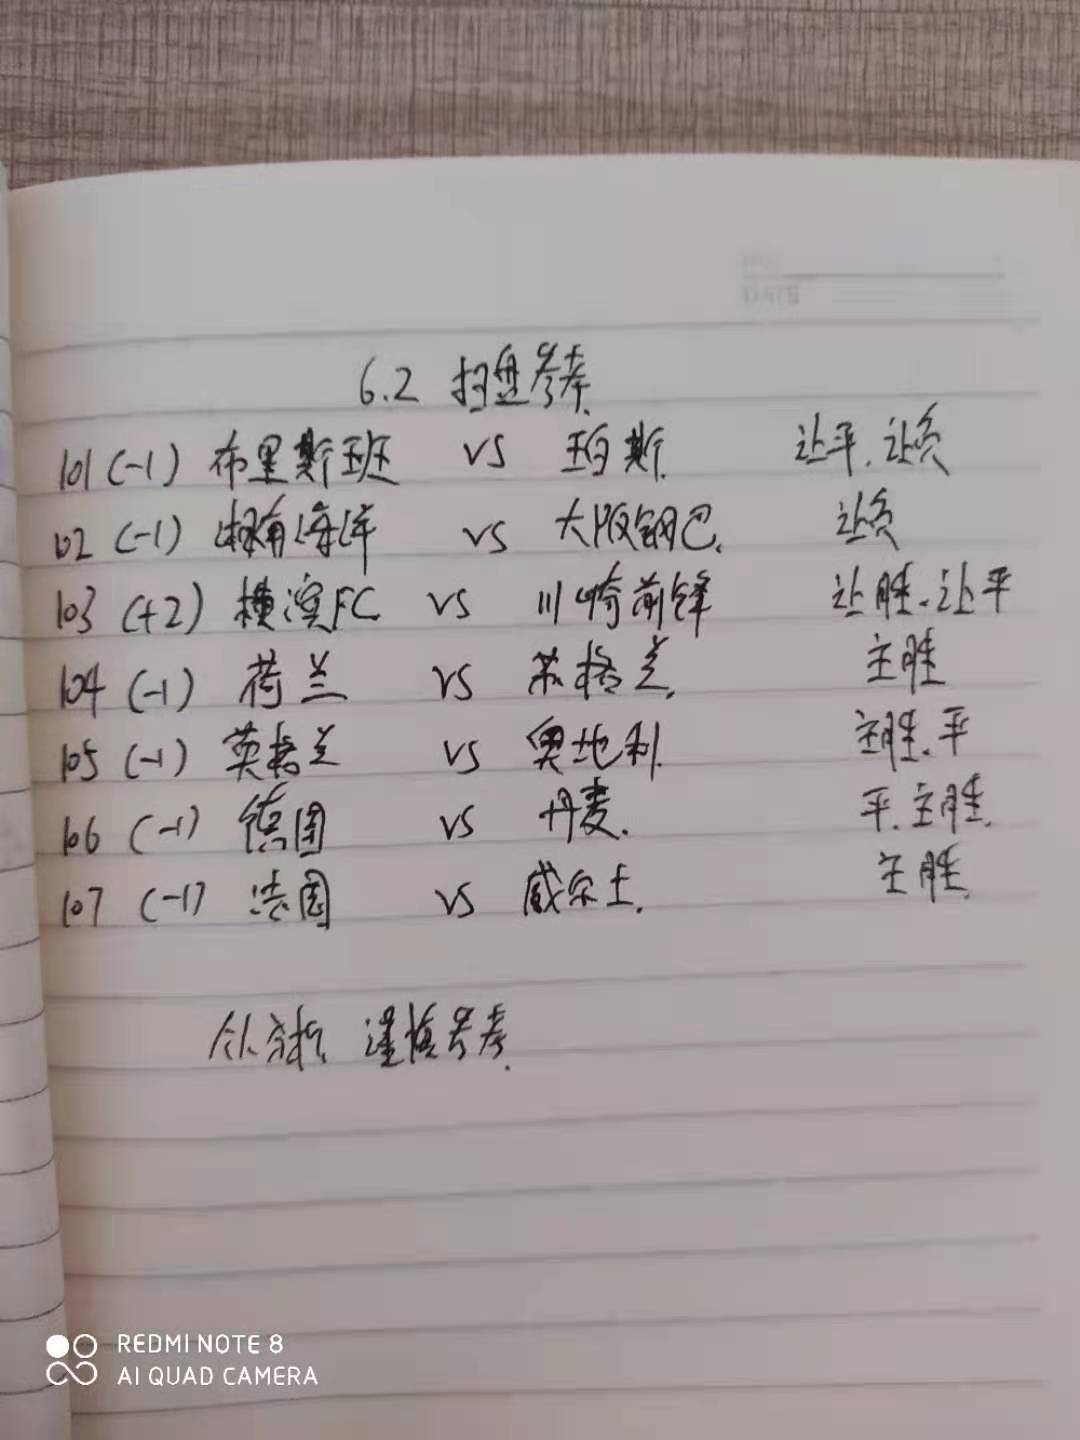 6.2 扫盘参考.
101 (-1) 布里斯班 VS 珀斯. 让平.让负
102 (-1) 湘南海洋 VS 大阪钢巴. 让负
103 (+2) 横滨FC VS 川崎前锋 让胜.让平
104 (-1) 荷兰 VS 苏格兰. 主胜
105 (-1) 英格兰 VS 奥地利. 主胜.平
106 (-1) 德国 VS 丹麦. 平.主胜.
107 (-1) 法国 VS 威尔士. 主胜.
个人分析, 谨慎参考.
REDMI NOTE 8
AI QUAD CAMERA